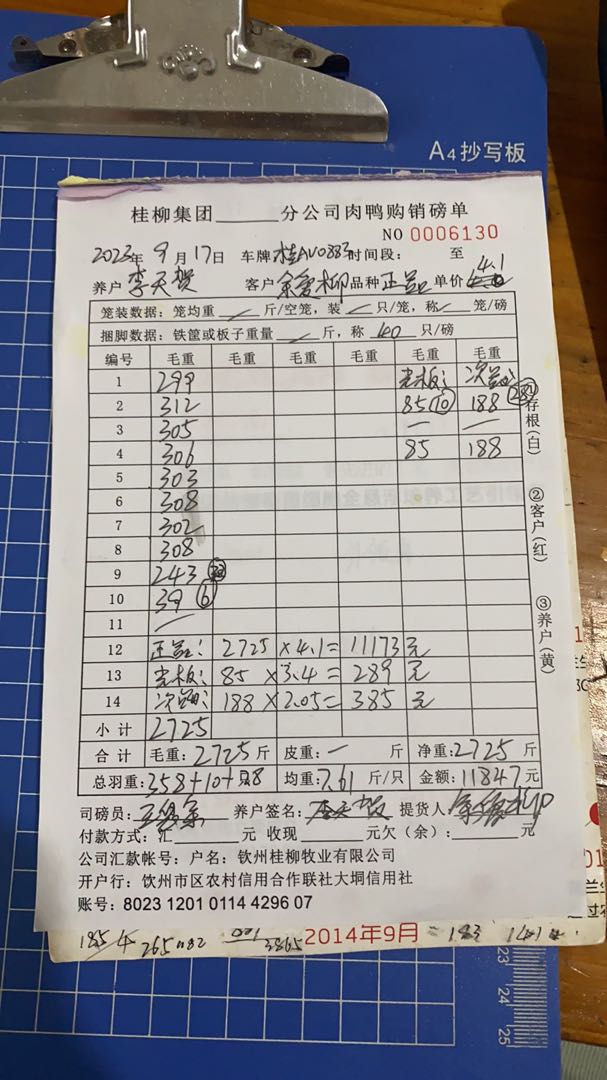 A4抄写板
桂柳集团 分公司肉鸭购销磅单
NO 0006130
2023年9月17日 车牌桂AV0883时间段: 至
养户 李天贺 客户 余爱柳 品种 正品 单价 4.1
笼装数据:笼均重 斤/空笼,装 只/笼,称 笼/磅
捆脚数据:铁筐或板子重量 斤,称 40 只/磅
编号 毛重 毛重 毛重 毛重 毛重 毛重
1 299 光板: 次品:
2 312 85⑩ 188
3 305 — —
4 306 85 188
5 303
6 308
7 302
8 308
9 243
10 39⑥
11 —
12 正品: 2725 ×4.1= 11173 元
13 光板: 85 ×3.4= 289 元
14 次品: 188 ×2.05= 385 元
小计 2725
合计 毛重:2725斤 皮重:— 斤 净重:2725斤
总羽重:358+10+28 均重:7.61 斤/只 金额:11847元
司磅员: 养户签名:李天贺 提货人:余爱柳
付款方式:汇 元 收现 元欠(余): 元
公司汇款帐号:户名:钦州桂柳牧业有限公司
开户行:钦州市区农村信用合作联社大垌信用社
账号:8023 1201 0114 4296 07
存根(白)
②客户(红)
③养户(黄)
2014年9月
23 24 25